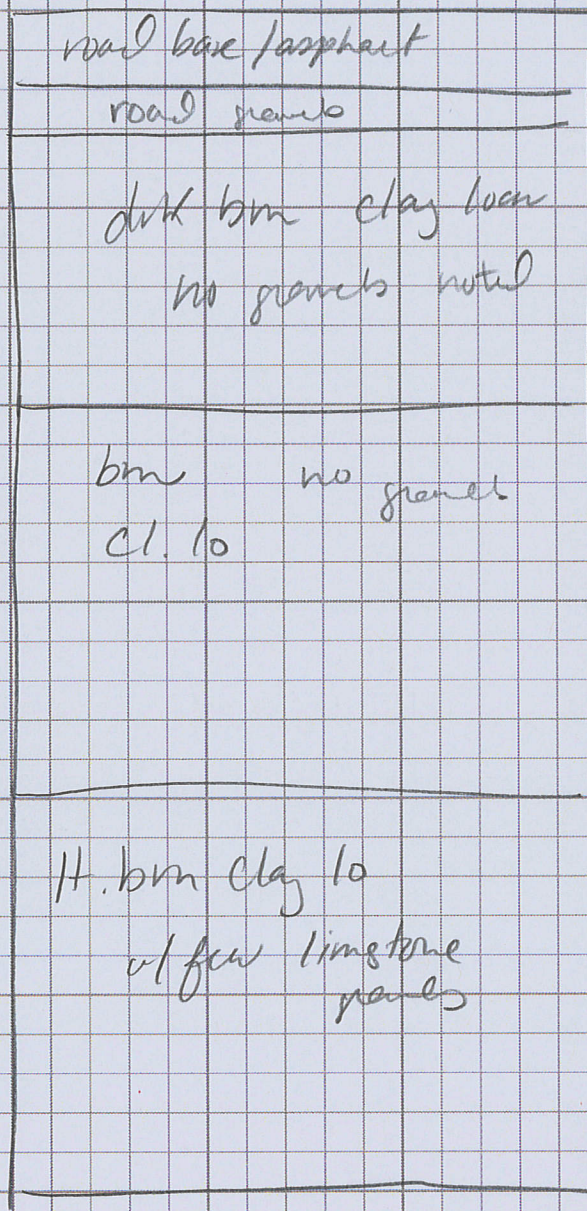 road base / asphalt
road gravels
drk brn clay loam
no gravels noted
brn no gravels
cl. lo
lt. brn clay lo
w/ few limstone
gravels